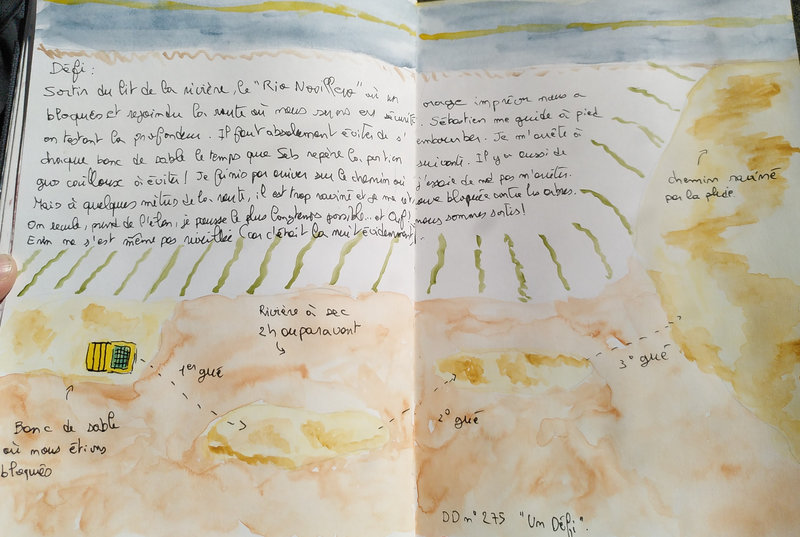 Défi :
Sortir du lit de la rivière, le "Rio Novillero" où un orage imprévu nous a
bloqués et rejoindre la route où nous serons en sécurité. Sébastien me guide à pied
en testant la profondeur. Il faut absolument éviter de s'embourber. Je m'arrête à
chaque banc de sable le temps que Seb repère la portion suivante. Il y a aussi de
gros cailloux à éviter ! Je finis par arriver sur le chemin où j'essaie de ne pas m'arrêter.
Mais à quelques mètres de la route, il est trop raviné et je me retrouve bloquée contre les arbres.
On recule, prend de l'élan, je pousse le plus longtemps possible... et Ouf! nous sommes sortis !
Erin ne s'est même pas réveillée (car c'était la nuit évidemment).
chemin raviné
par la pluie
Rivière à sec
2h auparavant
1er gué
2° gué
3° gué
Banc de sable
où nous étions
bloqués
DD n° 275 "Un Défi".